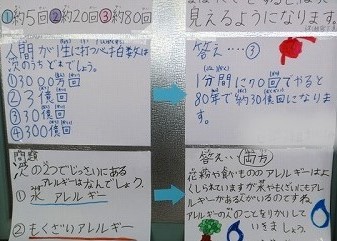 ①約5回②約20回③約80回
見えるようになります。
人間が1生に打つ心拍数は
次のうちどれでしょう。
①3000万回
②3億回
③30億回
④300億回
答え…③
1分間に70回でやると
80年で約30億回になりま
す。
問題
次の2つでじっさいにある
アレルギーはなんでしょう。
①水アレルギー
②もくざいアレルギー
答え…両方
花粉や食べもののアレルギーはよ
くしられていますが水やもくざいにもアレ
ルギーがあるから
アレルギーの
いきましょう